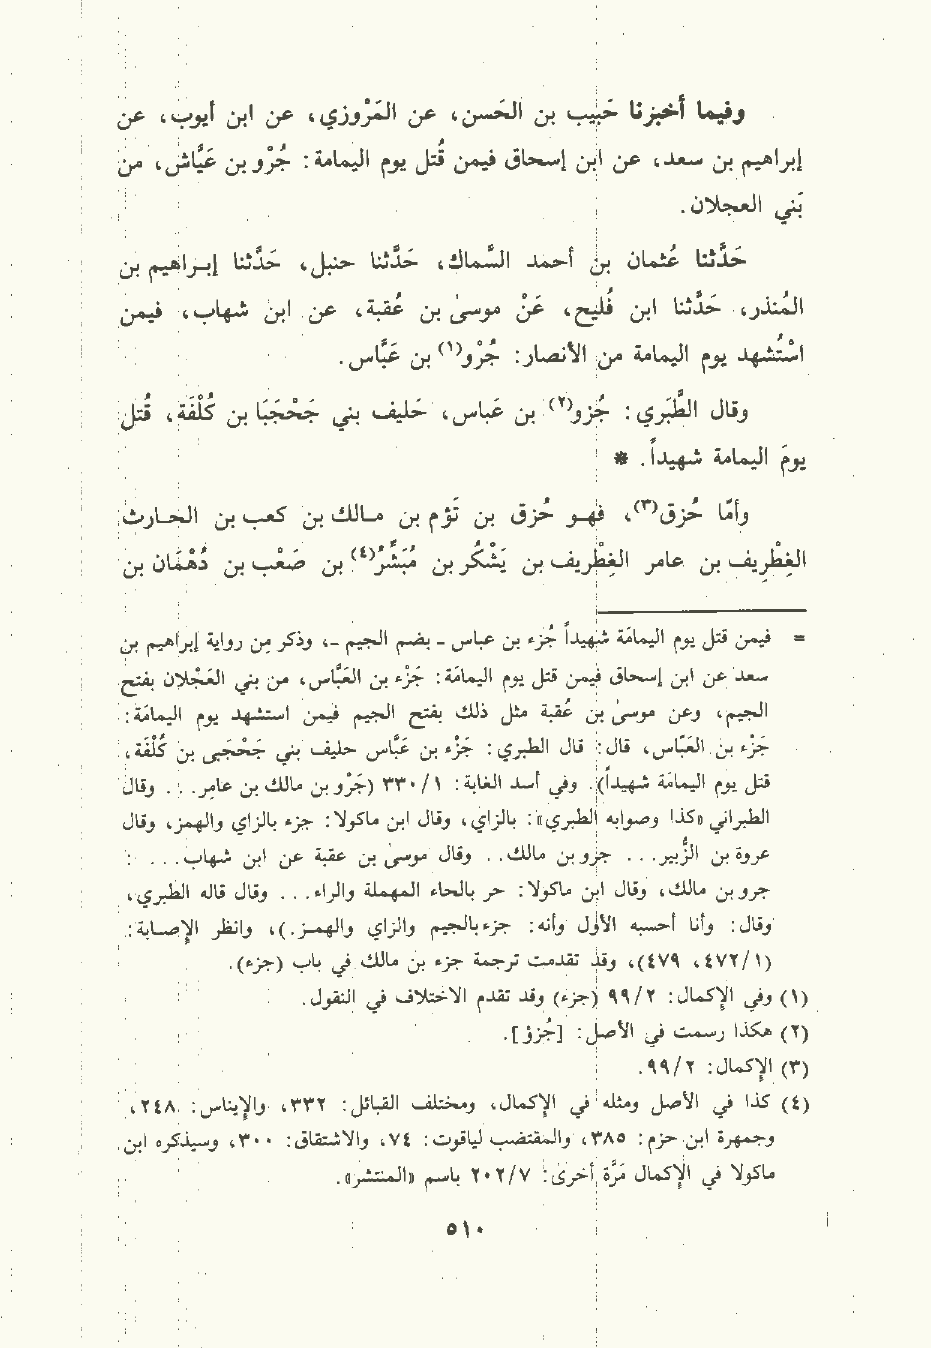 وفيما أخبرنا حَبِيب بن الحَسن، عن المَرْوزي، عن ابن أيوب، عن
إبراهيم بن سعد، عن ابن إسحاق فيمن قُتل يوم اليمامة: جُرْو بن عَيَّاش، من
بَني العجلان.
حَدَّثنا عُثمان بن أحمد السَّماك، حَدَّثنا حنبل، حَدَّثنا إبراهيم بن
المُنذر، حَدَّثنا ابن فُليح، عَنْ موسىٰ بن عُقبة، عن ابن شهاب، فيمن
اسْتُشهد يوم اليمامة من الأنصار: جُرْو(١) بن عَبَّاس.
وقال الطَّبَري: جُزو(٢) بن عَباس، حَليف بني جَحْجَبَا بن كُلْفَة، قُتل
يومَ اليمامة شهيداً. *
وأمّا حُزق(٣)، فهو حُزق بن تَؤم بن مالك بن كعب بن الحارث
الغِطْرِيف بن عامر الغِطْريف بن يَشْكُر بن مُبَشِّر(٤) بن صَعْب بن دُهْمَان بن
= فيمن قتل يوم اليمامَة شهيداً جُزء بن عباس - بضم الجيم -، وذكر مِن رواية إبراهيم بن
سعد عن ابن إسحاق فيمن قتل يوم اليمامَة: جَزْء بن العَبَّاس، من بني العَجْلان بفتح
الجيم، وعن موسىٰ بن عُقبة مثل ذلك بفتح الجيم فيمن استشهد يوم اليمامَة:
جَزْء بن العَبَّاس، قال: قال الطبري: جَزْء بن عَبَّاس حليف بني جَحْجَبى بن كُلْفَة،
قتل يوم اليمامَة شهيداً). وفي أسد الغابة: ١/ ٣٣٠ (جَرْو بن مالك بن عامِر. . . وقال
الطبراني «كذا وصوابه الطبري»: بالزاي، وقال ابن ماكولا: جزء بالزاي والهمز، وقال
عروة بن الزُّبير. . . جزو بن مالك. . وقال موسىٰ بن عقبة عن ابن شهاب. . . :
جرو بن مالك، وقال ابن ماكولا: حر بالحاء المهملة والراء. . . وقال قاله الطبري،
وقال: وأنا أحسبه الأول وأنه: جزء بالجيم والزاي والهمز.)، وانظر الإصابة:
(١/ ٤٧٢، ٤٧٩)، وقد تقدمت ترجمة جزء بن مالك في باب (جزء).
(١) وفي الإكمال: ٢/ ٩٩ (جزء) وقد تقدم الاختلاف في النقول.
(٢) هكذا رسمت في الأصل: [جُزؤ].
(٣) الإكمال: ٢/ ٩٩.
(٤) كذا في الأصل ومثله في الإكمال، ومختلف القبائل: ٣٣٢، والإيناس: ٢٤٨،
وجمهرة ابن حزم: ٣٨٥، والمقتضب لياقوت: ٧٤، والاشتقاق: ٣٠٠، وسيذكره ابن
ماكولا في الإكمال مَرَّة أخرىٰ: ٧/ ٢٠٢ باسم «المنتشر».
٥١٠